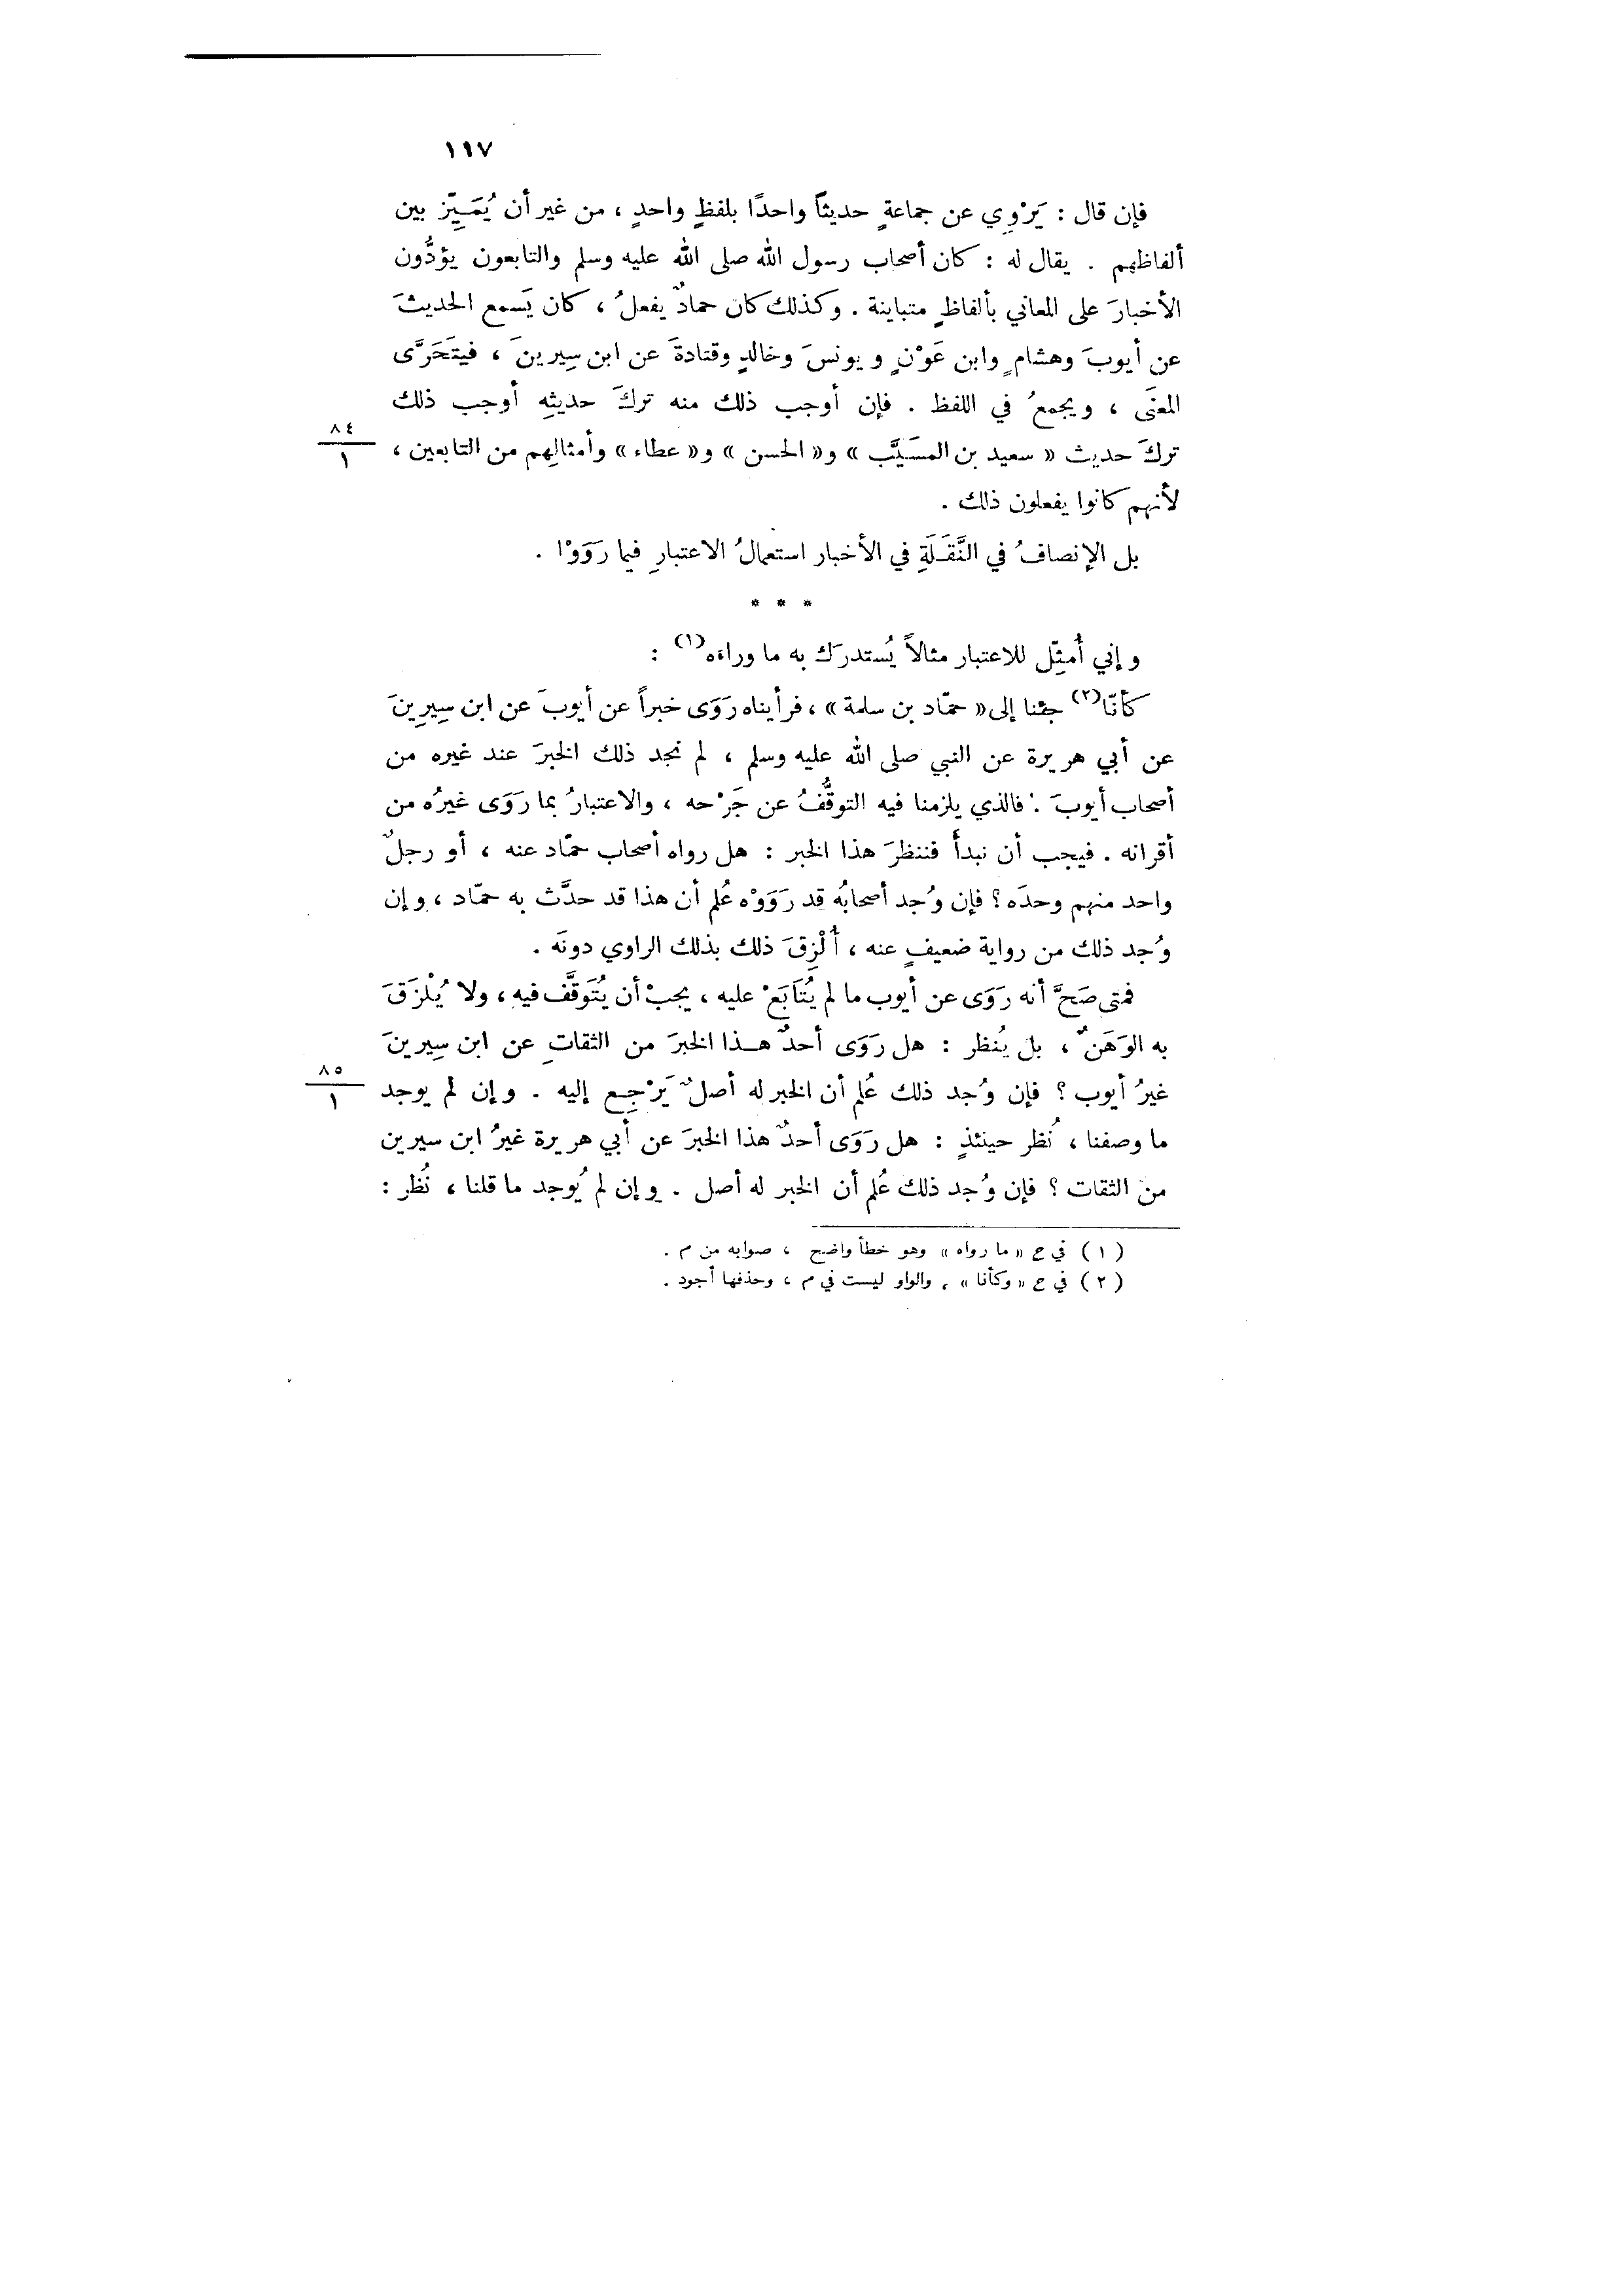 ١١٧
فإن قال : يَرْوِي عن جماعةٍ حديثاً واحدًا بلفظٍ واحدٍ ، من غير أن يُمَيِّز بين
ألفاظهم . يقال له : كان أصحاب رسول الله صلى الله عليه وسلم والتابعون يؤدُّون
الأخبارَ على المعاني بألفاظٍ متباينة . وكذلك كان حمادٌ يفعلُ ، كان يَسمع الحديثَ
عن أيوبَ وهشامٍ وابن عَوْنٍ ويونسَ وخالدٍ وقتادةَ عن ابن سِيرينَ ، فيتَحَرَّى
المعنَى ، ويجمعُ في اللفظ . فإن أوجب ذلك منه تركَ حديثِهِ أوجب ذلك
٨٤
١
تركَ حديث « سعيد بن المسَيَّب » و« الحسن » و« عطاء » وأمثالِهم من التابعين ،
لأنهم كانوا يفعلون ذلك .
بل الإنصافُ في النَّقَلَةِ في الأخبار استعمالُ الاعتبارِ فيما رَوَوْا .
* * *
وإني أُمثِّل للاعتبار مثالاً يُستدرَك به ما وراءَه(١) :
كأنّا(٢) جئنا إلى « حمّاد بن سلمة » ، فرأيناه رَوَى خبراً عن أيوبَ عن ابن سِيرِينَ
عن أبي هريرة عن النبي صلى الله عليه وسلم ، لم نجد ذلك الخبرَ عند غيره من
أصحاب أيوبَ : فالذي يلزمنا فيه التوقُّفُ عن جَرْحه ، والاعتبارُ بما رَوَى غيرُه من
أقرانه . فيجب أن نبدأَ فننظرَ هذا الخبر : هل رواه أصحاب حمّاد عنه ، أو رجلٌ
واحد منهم وحدَه ؟ فإن وُجد أصحابُه قد رَوَوْه عُلم أن هذا قد حدَّث به حمّاد ، وإن
وُجد ذلك من رواية ضعيفٍ عنه ، أُلْزِقَ ذلك بذلك الراوي دونَه .
فمتى صَحَّ أنه رَوَى عن أيوب ما لم يُتَابَعْ عليه ، يجبْ أن يُتَوقَّف فيه ، ولا يُلْزَقَ
به الوَهَنُ ، بل يُنظر : هل رَوَى أحدٌ هـذا الخبرَ من الثقاتِ عن ابن سِيرينَ
غيرُ أيوب ؟ فإن وُجد ذلك عُلم أن الخبر له أصلٌ يَرْجِع إليه . وإن لم يوجد
٨٥
١
ما وصفنا ، نُظر حينئذٍ : هل رَوَى أحدٌ هذا الخبرَ عن أبي هريرة غيرُ ابن سيرين
من الثقات ؟ فإن وُجد ذلك عُلم أن الخبر له أصل . وإن لم يُوجد ما قلنا ، نُظر :
( ١ ) في ح « ما رواه » وهو خطأ واضح ، صوابه من م .
( ٢ ) في ح « وكأنا » ، والواو ليست في م ، وحذفها أجود .